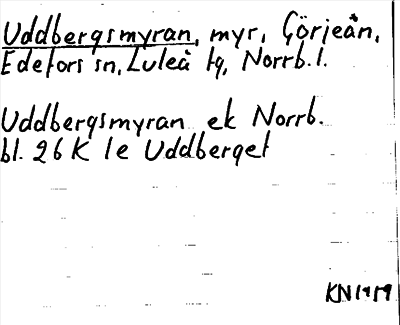 Uddbergsmyran, myr, Görjeån,
Edefors sn, Luleå tg, Norrb. l.
Uddbergsmyran ek Norrb.
bl. 26 K 1e Uddberget